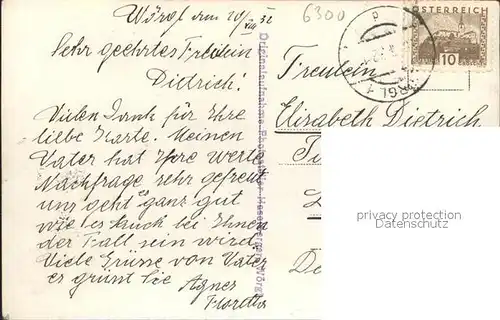 Wörgl am 20/VIII 32
6300
ÖSTERREICH
10
RGL 1
Sehr geehrtes Freulein
Dietrich!
Vielen Dank für Ihre
liebe Karte. Meinen
Vater hat Ihre werte
Nachfrage sehr gefreut
uns geht ganz gut
wie es auch bei Ihnen
der Fall sein wird.
Viele Grüsse von Vater
es grünt Sie Agnes
Originalaufnahme Wörgl
Freulein
Elisabeth Dietrich
privacy protection
Datenschutz